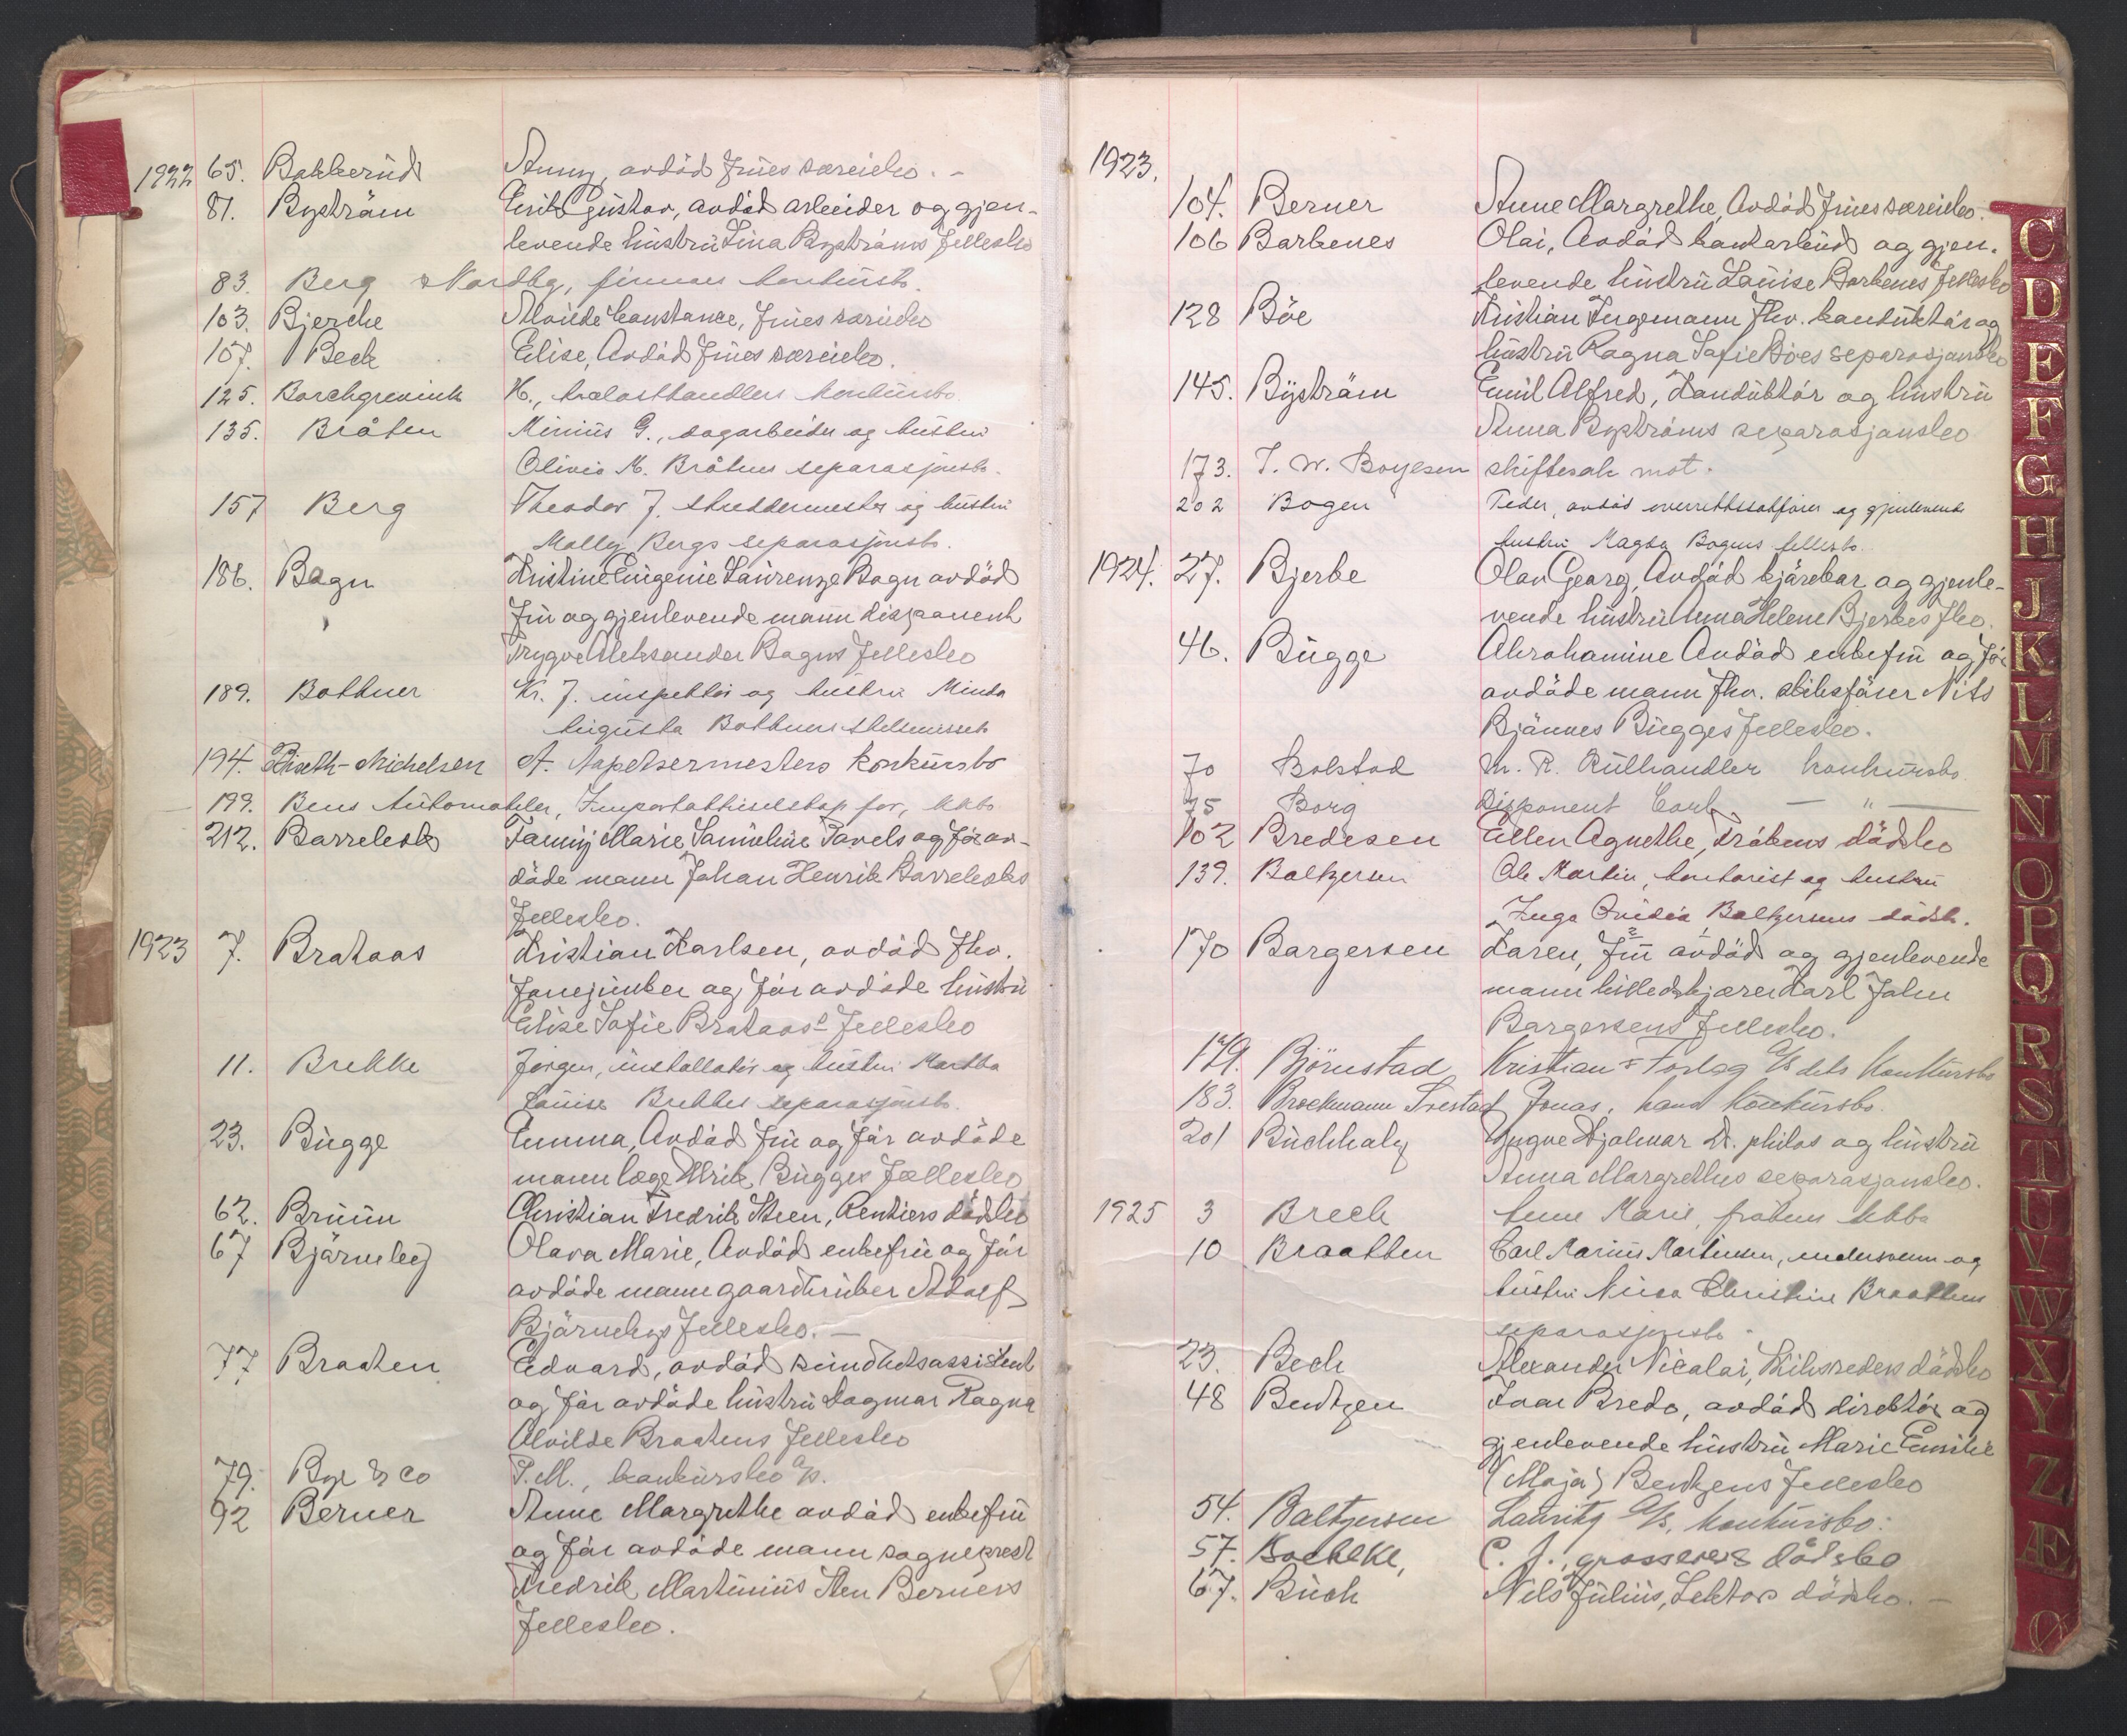 1922 65. Bakkerud Anny, avdød frues særeiebo. -
81. Byström Erik Gustav, avdöd arbeider og gjen-
levende hustru Lina Byströms fellesbo
83. Berg & Nordby, firmaes konkursbo.
103. Bjerche Alvilde Constance, frues særeiebo
107. Beck Elise, Avdöd frues særeiebo.
125. Borchgrevink H., trælasthandlers konkursbo
135. Bråten Minius G., sagarbeider og hustru
Olivia M. Bråtens separasjonsbo.
157 Berg Theodor J. skreddermester og hustru
Molly Bergs separasjonsbo.
186. Bagn Kristine Eugenie Laurenze Bagn avdöd
fru og gjenlevende mann disponent
Trygve Aleksander Bagns fellesbo
189. Bottner Kr. J. inspektör og hustru Minda
Augusta Bottners
194. Riseth-Michelsen A. Tapetsermesters konkursbo
199. Bens Automobiler, Importaktieselskap for, kkbo
212. Barreleth Fanny Marie Samueline Pavels og för av-
döde mann Johan Henrik Barreleths
fellesbo.
1923 7. Brataas Kristian Karlsen, avdöd fhv.
forrejunker og för avdöde hustru
Elise Sofie Brataas' fellesbo
11. Brekke Jörgen, installatör og hustru Martha
Louise Brekkes separasjonsbo.
23. Bugge Emma, Avdöd fru og för avdöde
mann læge Ulrik Bugges fællesbo
62. Bruun Christian Fredrik Steen, Rentiers dödsbo
67 Bjørneby Olava Marie, Avdöd enkefru og för
avdöde mann gaardbruker Adolf
Björnebys fellesbo. -
77 Braaten Edvard, avdöd sundhetsassistent
og för avdöde hustru Dagmar Ragna
Alvilde Braatens fellesbo
79. Bye & Co P.M., konkursbo a/s.
92 Berner Anne Margrethe avdöd enkefru
og för avdöde mann sogneprest
Fredrik Martinius Sten Berners
fellesbo.
1923.
104. Berner Anne Margrethe, Avdöd frues særeiebo.
106 Barbenes Olai, Avdöd kontorbud og gjen-
levende hustru Louise Barbenes fellesbo
128 Böe Kristian Jurgemann fhv. konduktör og
hustru Ragna Sofie Böes separasjonsbo
145. Byström Emil Alfred, Konduktör og hustru
Anna Byströms separasjonsbo
173. J. W. Boyesen skiftesak mot.
202 Bogen Peder, avdöd overrettssakförer og gjenlevende
hustru Magda Bogens fellesbo
1924. 27. Bjerke Olav Georg, Avdöd kjörekar og gjenle-
vende hustru Anna Helene Bjerkes fbo.
46. Bugge Abrahamine Avdöd enkefru og för
avdöde mann fhv. skibsförer Nils
Björnnes Bugges fellesbo.
70 Bolstad M. R. Kulhandler konkursbo.
75 Borg Disponent Carl — " —
102 Bredesen Ellen Agnethe, Frökens dödsbo
139. Baltzersen Ole Martin, kontorist og hustru
Inga Ovidia Baltzersens dödsb.
170 Børgersen Karen, fru avdöd og gjenlevende
mann billedskjærer Karl Johan
Børgersens fellesbo.
179. Björnstad Kristian Forlag A/S dets Konkursbo
183. Brockmann Svestad Jonas, hans konkursbo.
201 Buchholz Yngve Hjalmar Dr. philos og hustru
Anna Margrethes separasjonsbo.
1925 3 Brech Anne Marie, frökens kkbo
10 Braathen Carl Marius Martinsen, snekkersvenn og
hustru Nicoa Christine Braathens
separasjonsbo.
23. Bech Alexander Nicolai, Skibsreders dödsbo
48 Bentzen Ivar Bredo, avdöd direktör og
gjenlevende hustru Marie Emilie
(Maja) Bentzens fellesbo
54. Baltzersen Lauritz A/S, konkursbo.
57. Boehlke, C. J., grosserers dödsbo
67. Buch Nils Julius, Lektor dödsbo. -
C
D
E
F
G
H
J
K
L
M
N
O
P
Q
R
S
T
U
V
W
X
Y
Z
Æ
Ø